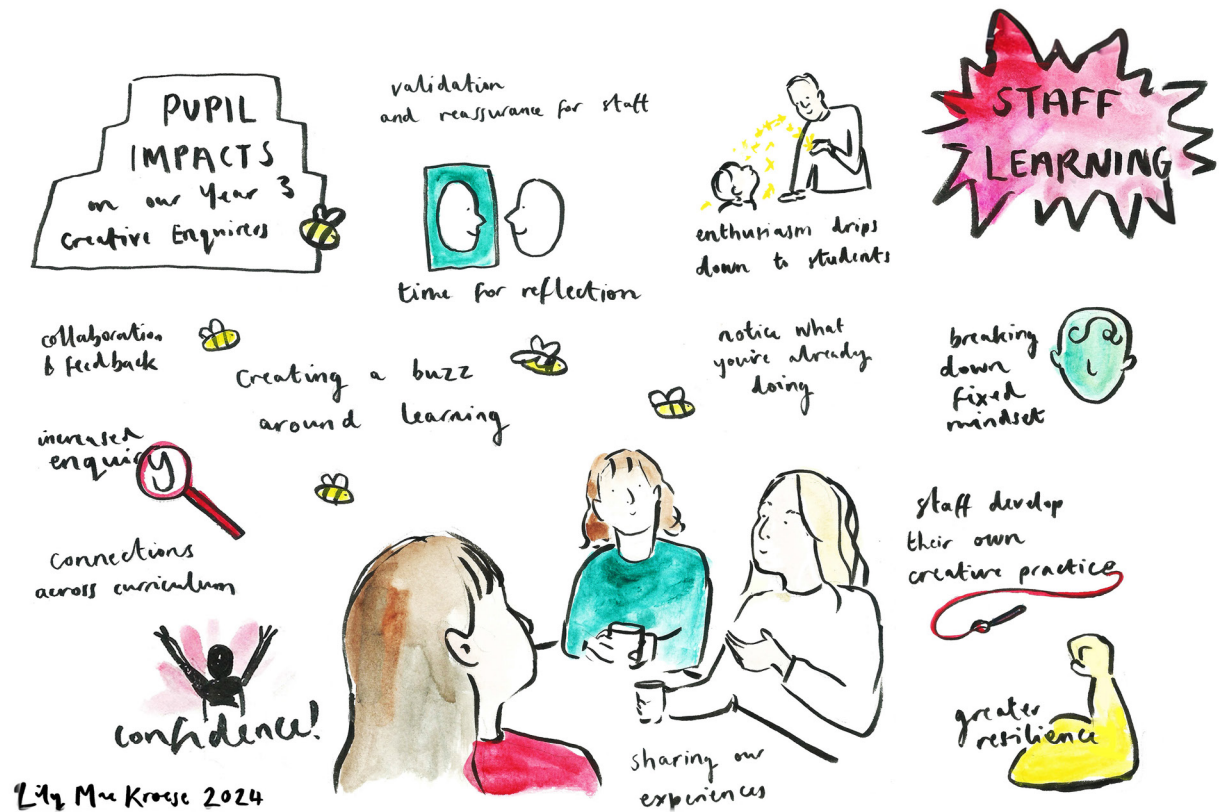 PUPIL
IMPACTS
on our Year 3
Creative Enquirers
validation
and reassurance for staff
time for reflection
enthusiasm drips
down to students
STAFF
LEARNING
collaboration
& feedback
Creating a buzz
around learning
notice what
you're already
doing
breaking
down
fixed
mindset
increased
enquiry
Connections
across curriculum
confidence!
staff develop
their own
creative practice
greater
resilience
sharing our
experiences
Lily Mae Kroese 2024